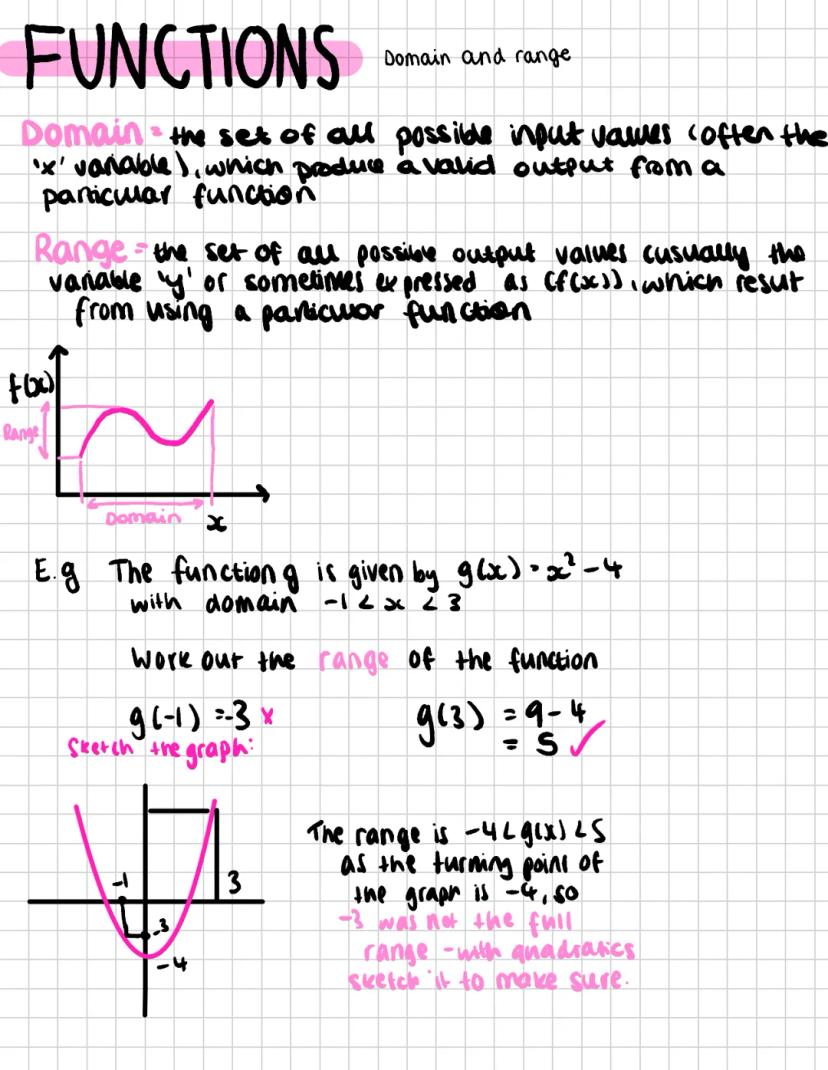 FUNCTIONS Domain and range
Domain = the set of all possible input values (often the
'x' variable), which produce a valid output from a
particular function
Range = the set of all possible output values (usually the
variable 'y' or sometimes expressed as (f(x)), which result
from using a particular function
f(x)
Range
Domain
x
E.g The function g is given by g(x) = x² - 4
with domain -1 < x < 3
Work out the range of the function
g(-1) = -3 x
g(3) = 9 - 4
= 5 ✓
Sketch the graph:
-1
3
-3
-4
The range is -4 < g(x) < 5
as the turning point of
the graph is -4, so
-3 was not the full
range - with quadratics
sketch it to make sure.